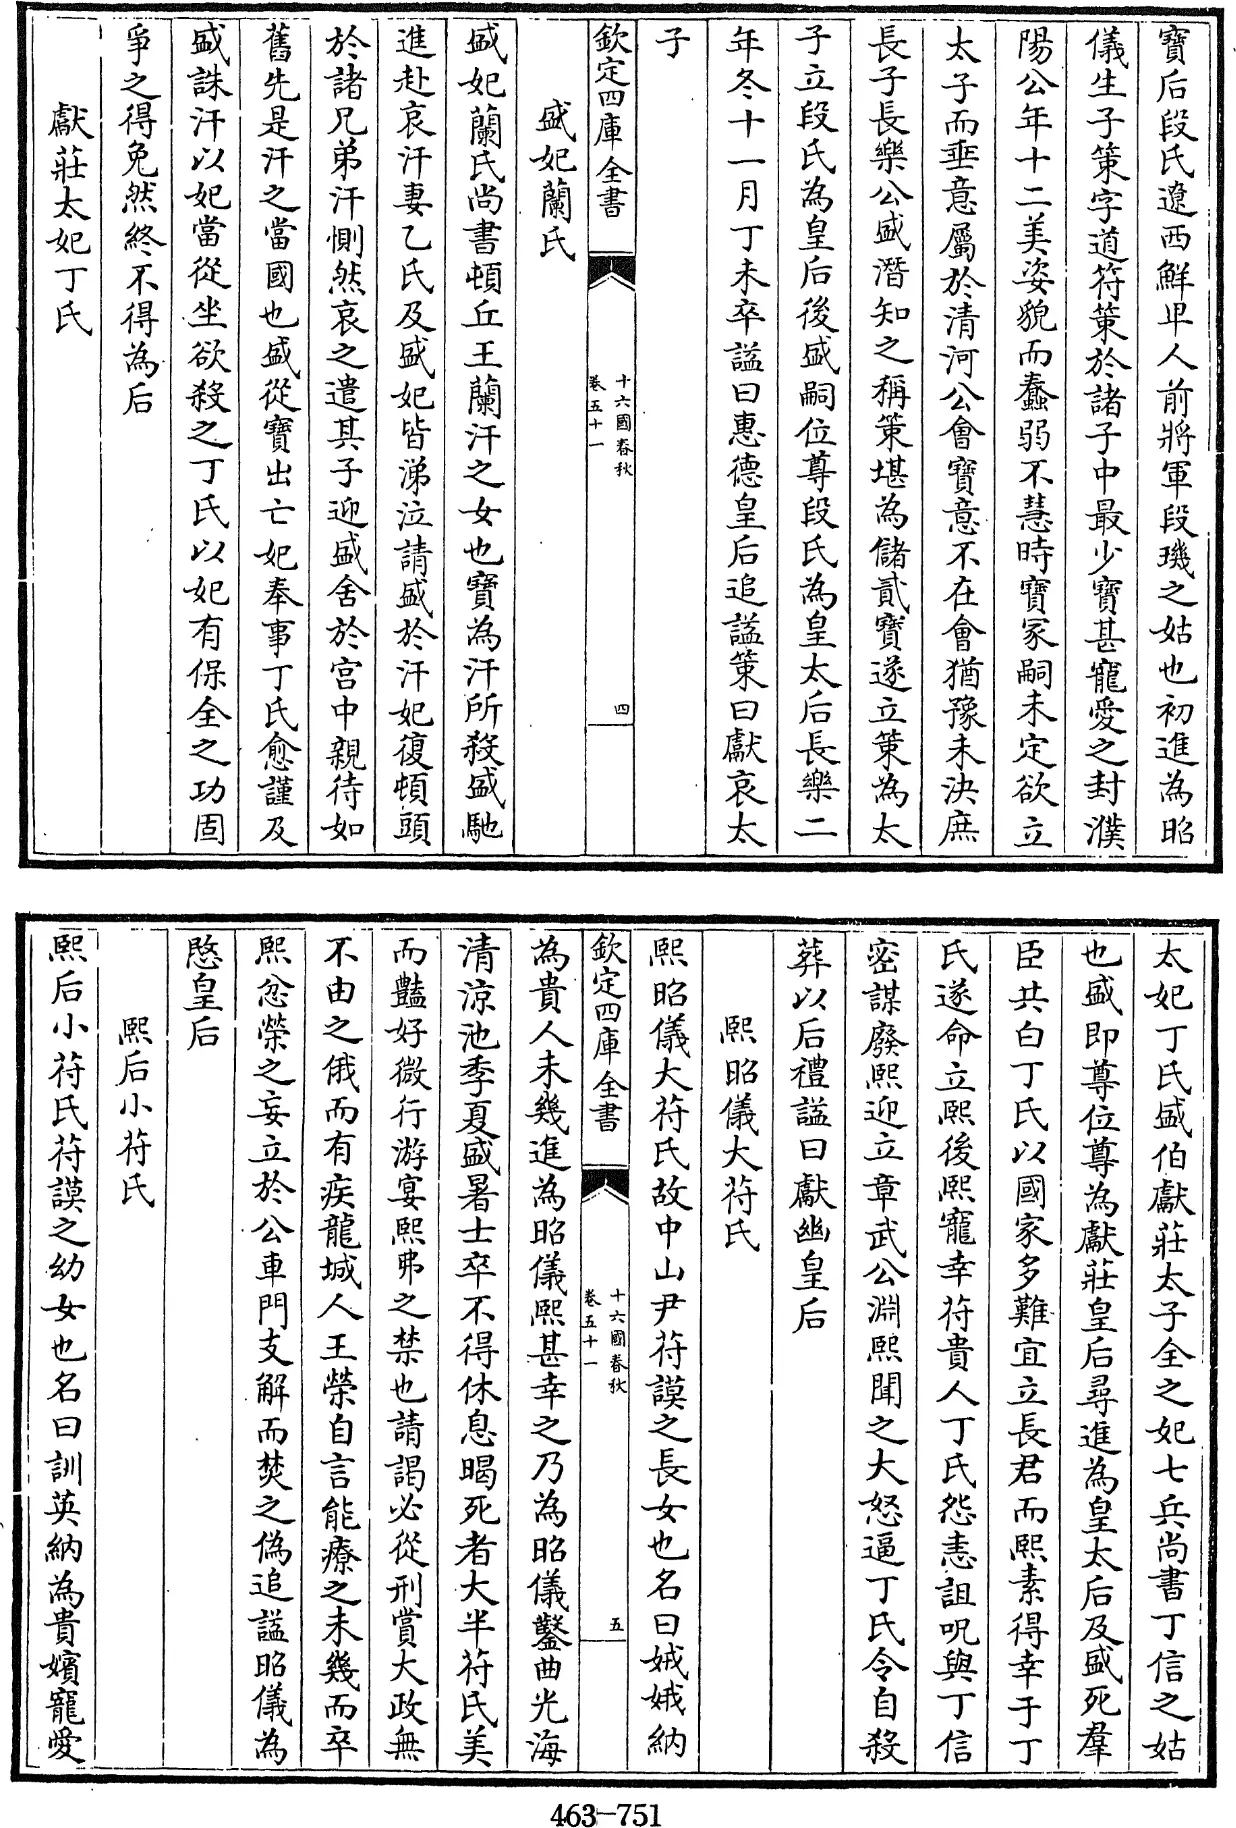 寶后段氏遼西鮮卑人前將軍段璣之姑也初進為昭
儀生子策字道符策於諸子中最少寶甚寵愛之封濮
陽公年十二美姿貌而蠢弱不慧時寶冢嗣未定欲立
太子而垂意屬於清河公會寶意不在會猶豫未決庶
長子長樂公盛潛知之稱策堪為儲貳寶遂立策為太
子立段氏為皇后後盛嗣位尊段氏為皇太后長樂二
年冬十一月丁未卒謚曰惠德皇后追謚策曰獻哀太
子
欽定四庫全書
十六國春秋
卷五十一
四
盛妃蘭氏
盛妃蘭氏尚書頓丘王蘭汗之女也寶為汗所殺盛馳
進赴哀汗妻乙氏及盛妃皆涕泣請盛於汗妃復頓頭
於諸兄弟汗惻然哀之遣其子迎盛舍於宮中親待如
舊先是汗之當國也盛從寶出亡妃奉事丁氏愈謹及
盛誅汗以妃當從坐欲殺之丁氏以妃有保全之功固
爭之得免然終不得為后
獻莊太妃丁氏
太妃丁氏盛伯獻莊太子全之妃七兵尚書丁信之姑
也盛即尊位尊為獻莊皇后尋進為皇太后及盛死羣
臣共白丁氏以國家多難宜立長君而熙素得幸于丁
氏遂命立熙後熙寵幸苻貴人丁氏怨恚詛呪與丁信
密謀廢熙迎立章武公淵熙聞之大怒逼丁氏令自殺
葬以后禮謚曰獻幽皇后
熙昭儀大苻氏
熙昭儀大苻氏故中山尹苻謨之長女也名曰娀娥納
欽定四庫全書
十六國春秋
卷五十一
五
為貴人未幾進為昭儀熙甚幸之乃為昭儀鑿曲光海
清涼池季夏盛暑士卒不得休息暍死者大半苻氏美
而豔好微行游宴熙弗之禁也請謁必從刑賞大政無
不由之俄而有疾龍城人王榮自言能療之未幾而卒
熙忿榮之妄立於公車門支解而焚之偽追謚昭儀為
愍皇后
熙后小苻氏
熙后小苻氏苻謨之幼女也名曰訓英納為貴嬪寵愛
463-751